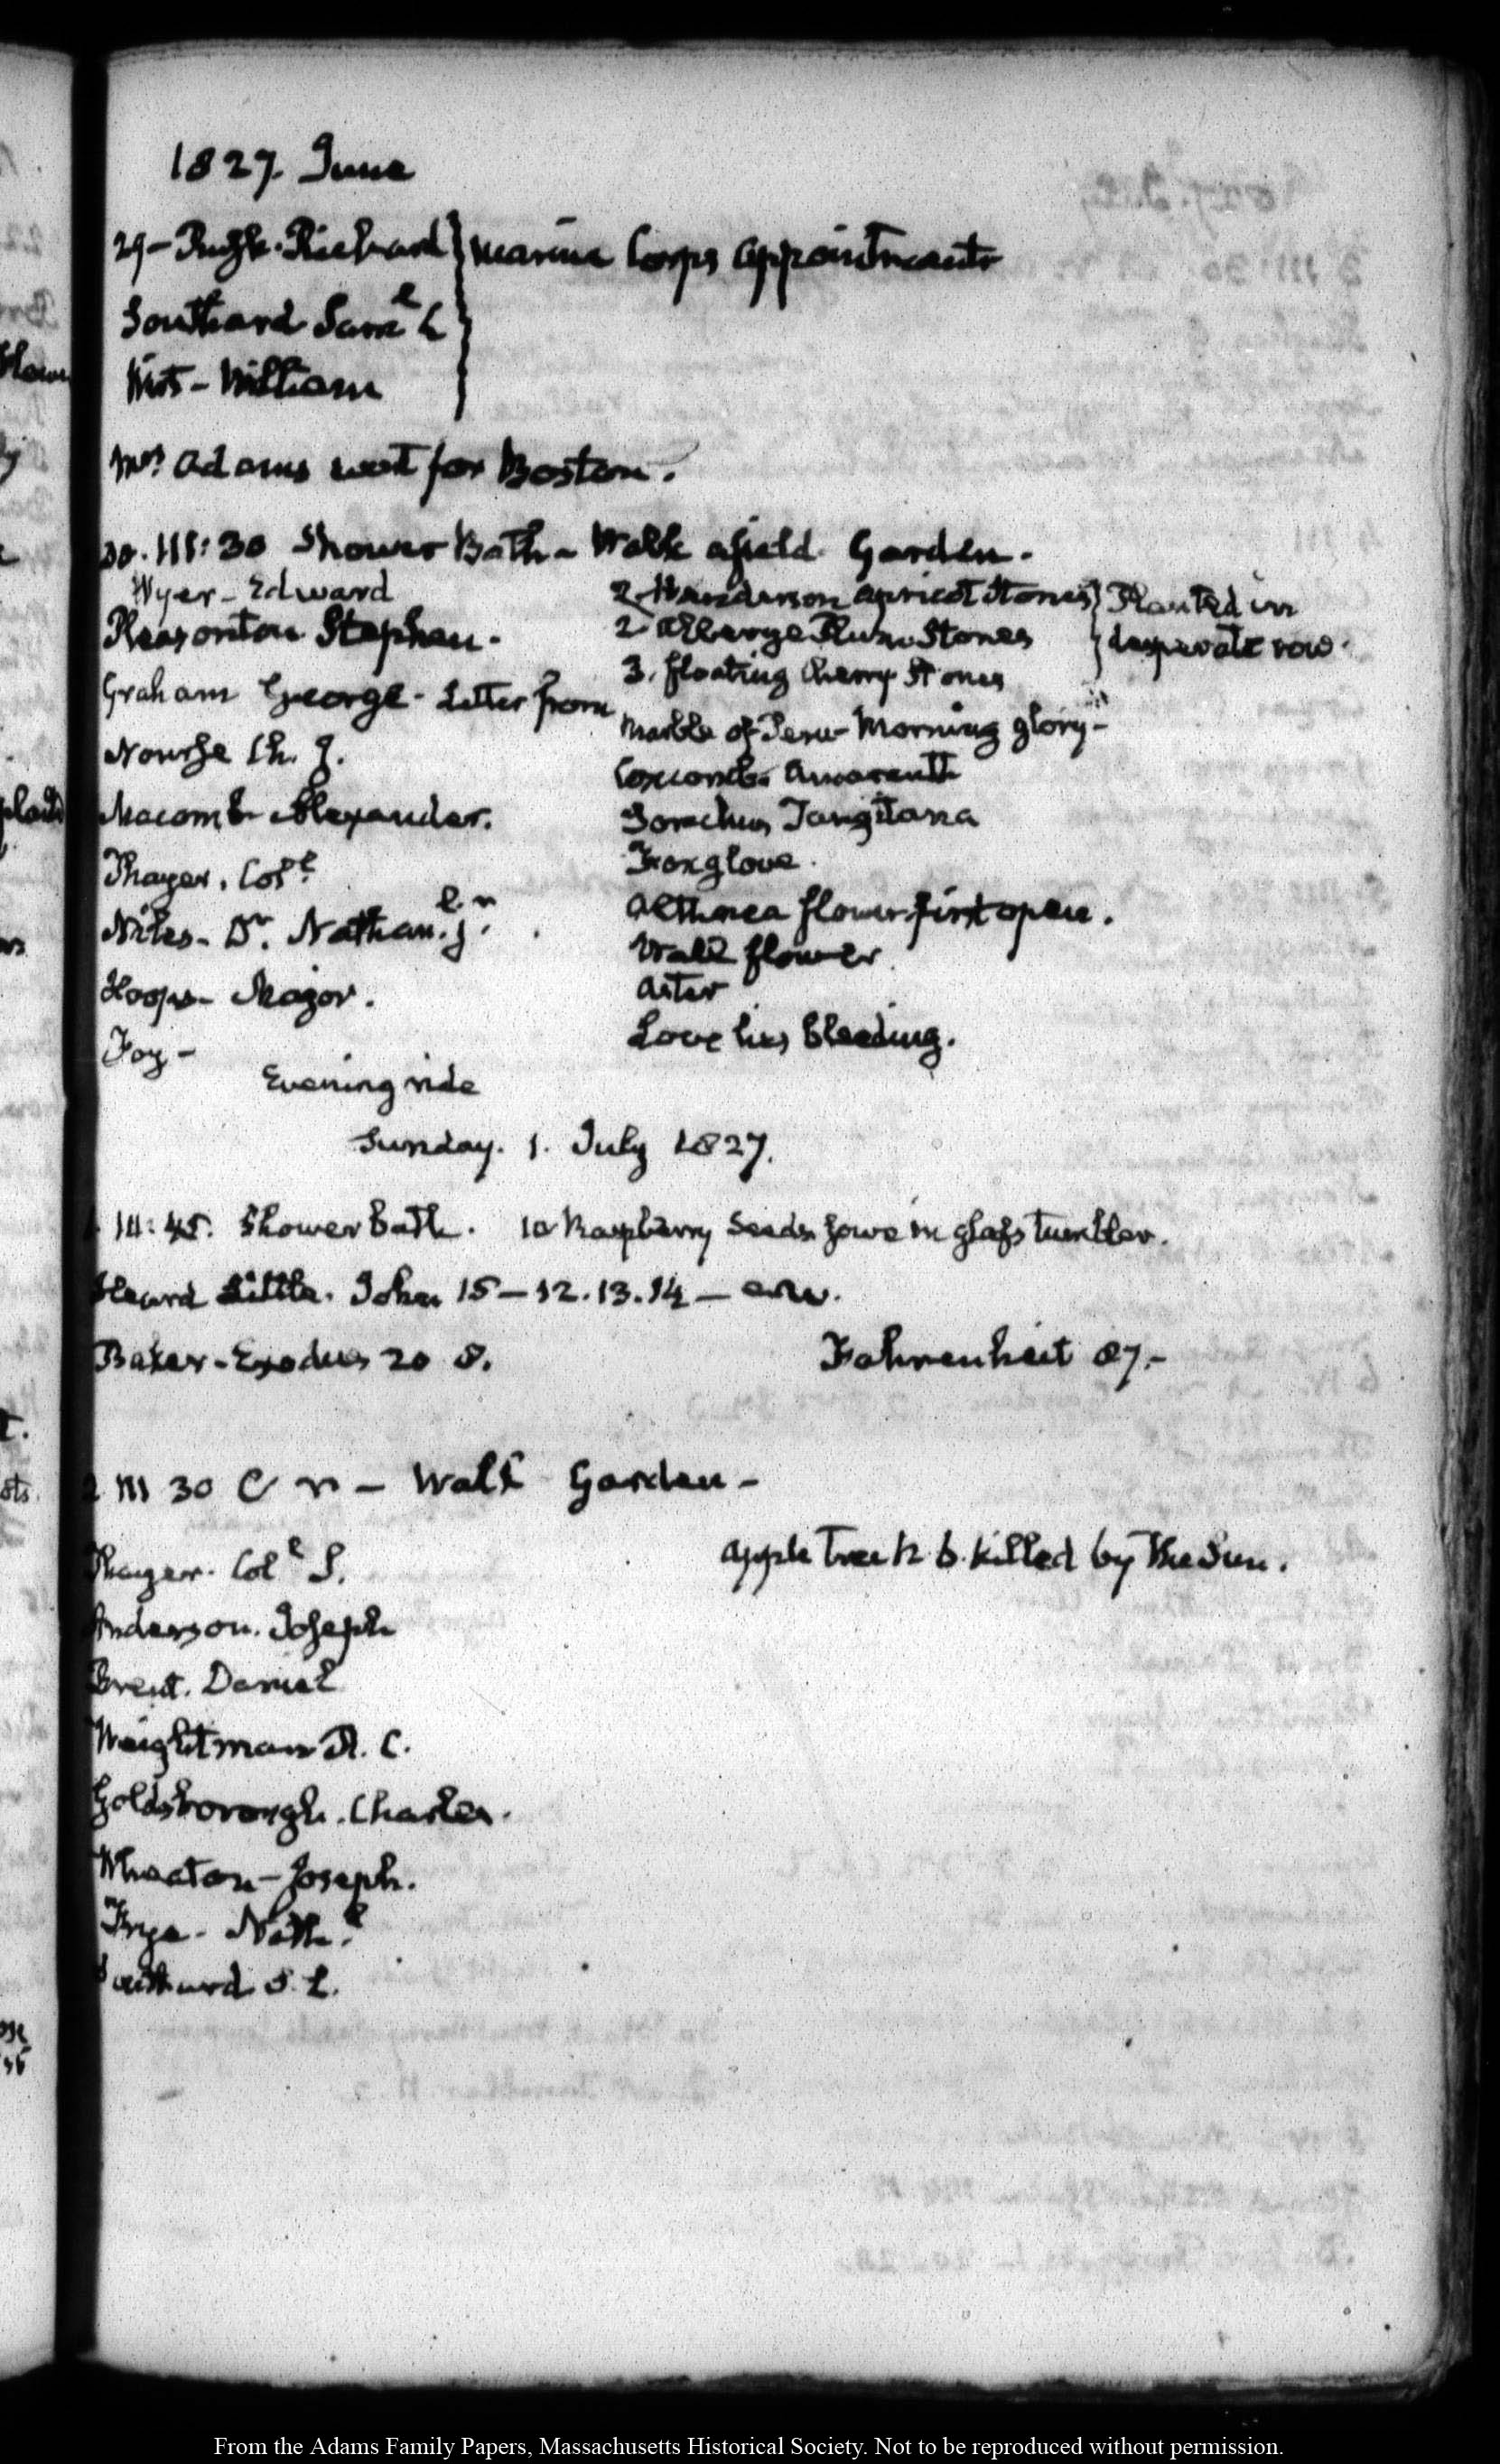 1827. June
29 - Pugh. Richard } Marine Corps appointments
Southard Sam.l L
Wirt - William
Mrs. Adams went for Boston.
30. III:30 Shower Bath - Walk afield. Garden.
Wyer - Edward
Pleasonton Stephen.
Graham George - Letter from
Nourse Ch. J.
Macomb Alexander.
Thayer. Col.l
Niles - Dr. Nathan.l jr.
Hoops - Major.
Foy -
Evening ride
2 Henderson apricot Stones } Planted in
2 Alberge Plum Stones } desperate row.
3. floating Cherry Stones
Marble of Peru - Morning glory -
Coxcomb. Amaranth
Sonchus Tangitana
Foxglove.
Althaea flower first open.
Wall flower
Aster
Love lies bleeding.
Sunday. 1. July 1827.
III:45. Shower Bath. 10 Raspberry Seeds sowe in glass tumbler.
Heard Little. John 15 - 12.13.14 -
Baker - Exodus 20 8.
Fahrenheit 87. -
2 III 30 C n - Walk Garden -
Thayer. Col.l S.
Apple Tree N. 6. killed by the Sun.
Anderson. Joseph
Brent. Daniel
Weightman R. C.
Goldsborough. Charles.
Wheaton - Joseph.
Frye - Nath.l
Southard S. L.
From the Adams Family Papers, Massachusetts Historical Society. Not to be reproduced without permission.